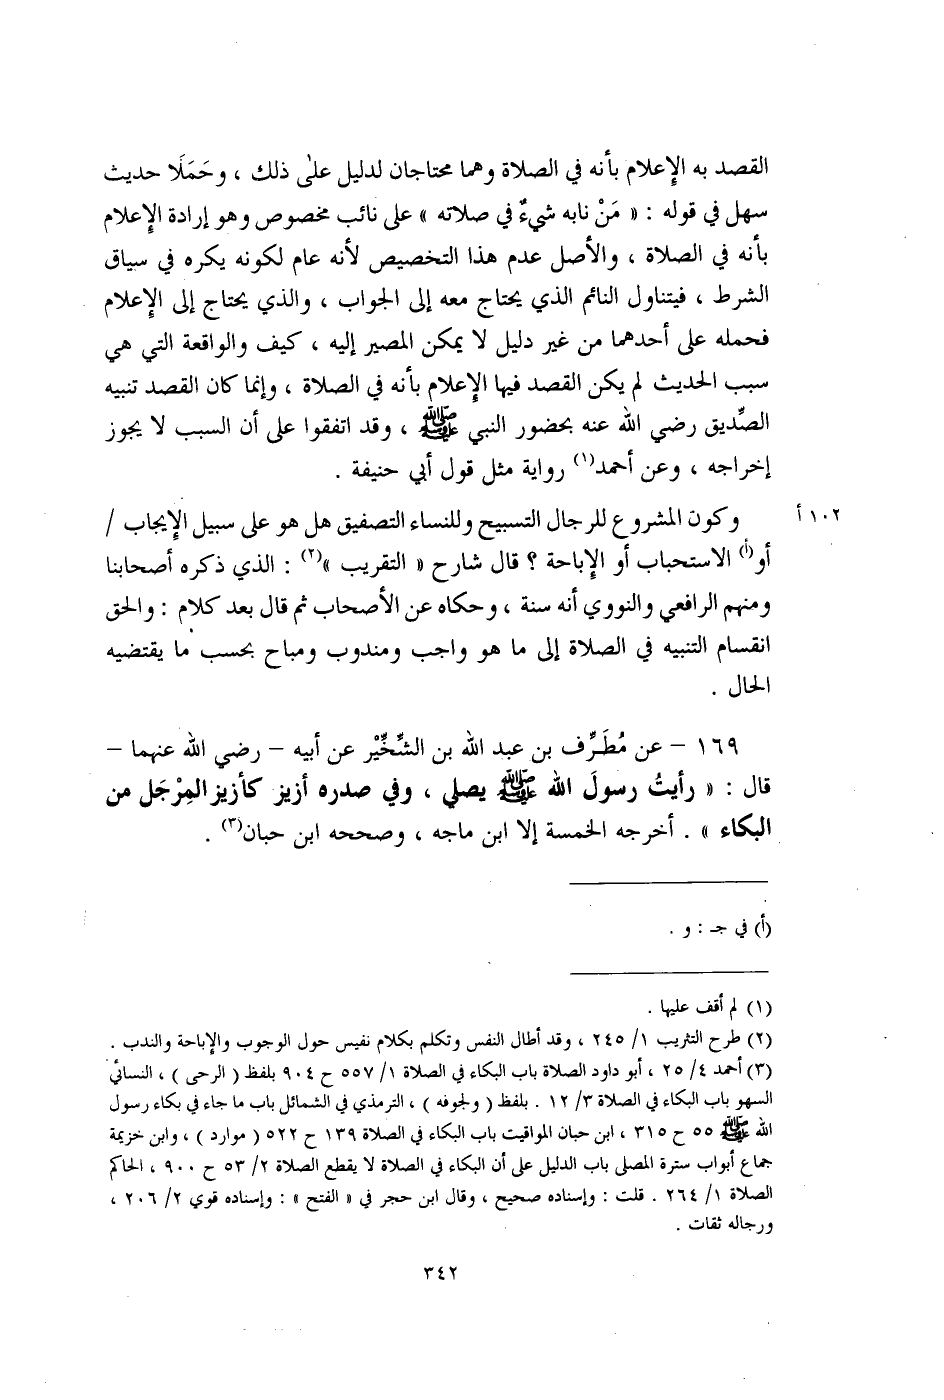 القصد به الإعلام بأنه في الصلاة وهما محتاجان لدليل على ذلك ، وحَمَلَا حديث
سهل في قوله : « مَنْ نابه شيءٌ في صلاته » على نائب مخصوص وهو إرادة الإعلام
بأنه في الصلاة ، والأصل عدم هذا التخصيص لأنه عام لكونه يكره في سياق
الشرط ، فيتناول النائم الذي يحتاج معه إلى الجواب ، والذي يحتاج إلى الإعلام
فحمله على أحدهما من غير دليل لا يمكن المصير إليه ، كيف والواقعة التي هي
سبب الحديث لم يكن القصد فيها الإعلام بأنه في الصلاة ، وإنما كان القصد تنبيه
الصِّديق رضي الله عنه بحضور النبي ﷺ ، وقد اتفقوا على أن السبب لا يجوز
إخراجه ، وعن أحمد(١) رواية مثل قول أبي حنيفة .
وكون المشروع للرجال التسبيح وللنساء التصفيق هل هو على سبيل الإيجاب / ١٠٢ أ
أو(أ) الاستحباب أو الإباحة ؟ قال شارح « التقريب »(٢) : الذي ذكره أصحابنا
ومنهم الرافعي والنووي أنه سنة ، وحكاه عن الأصحاب ثم قال بعد كلام : والحق
انقسام التنبيه في الصلاة إلى ما هو واجب ومندوب ومباح بحسب ما يقتضيه
الحال .
١٦٩ – عن مُطَرِّف بن عبد الله بن الشِّخِّيْر عن أبيه – رضي الله عنهما –
قال : « رأيتُ رسولَ الله ﷺ يصلي ، وفي صدره أزيز كأزيز المِرْجَل من
البكاء » . أخرجه الخمسة إلا ابن ماجه ، وصححه ابن حبان(٣) .
(أ) في جـ : و .
(١) لم أقف عليها .
(٢) طرح التثريب ١/ ٢٤٥ ، وقد أطال النفس وتكلم بكلام نفيس حول الوجوب والإباحة والندب .
(٣) أحمد ٤/ ٢٥ ، أبو داود الصلاة باب البكاء في الصلاة ١/ ٥٥٧ ح ٩٠٤ بلفظ ( الرحى ) ، النسائي
السهو باب البكاء في الصلاة ٣/ ١٢ . بلفظ ( ولجوفه ) ، الترمذي في الشمائل باب ما جاء في بكاء رسول
الله ﷺ ٥٥ ح ٣١٥ ، ابن حبان المواقيت باب البكاء في الصلاة ١٣٩ ح ٥٢٢ ( موارد ) ، وابن خزيمة
جماع أبواب سترة المصلى باب الدليل على أن البكاء في الصلاة لا يقطع الصلاة ٢/ ٥٣ ح ٩٠٠ ، الحاكم
الصلاة ١/ ٢٦٤ . قلت : وإسناده صحيح ، وقال ابن حجر في « الفتح » : وإسناده قوي ٢/ ٢٠٦ ،
ورجاله ثقات .
٣٤٢